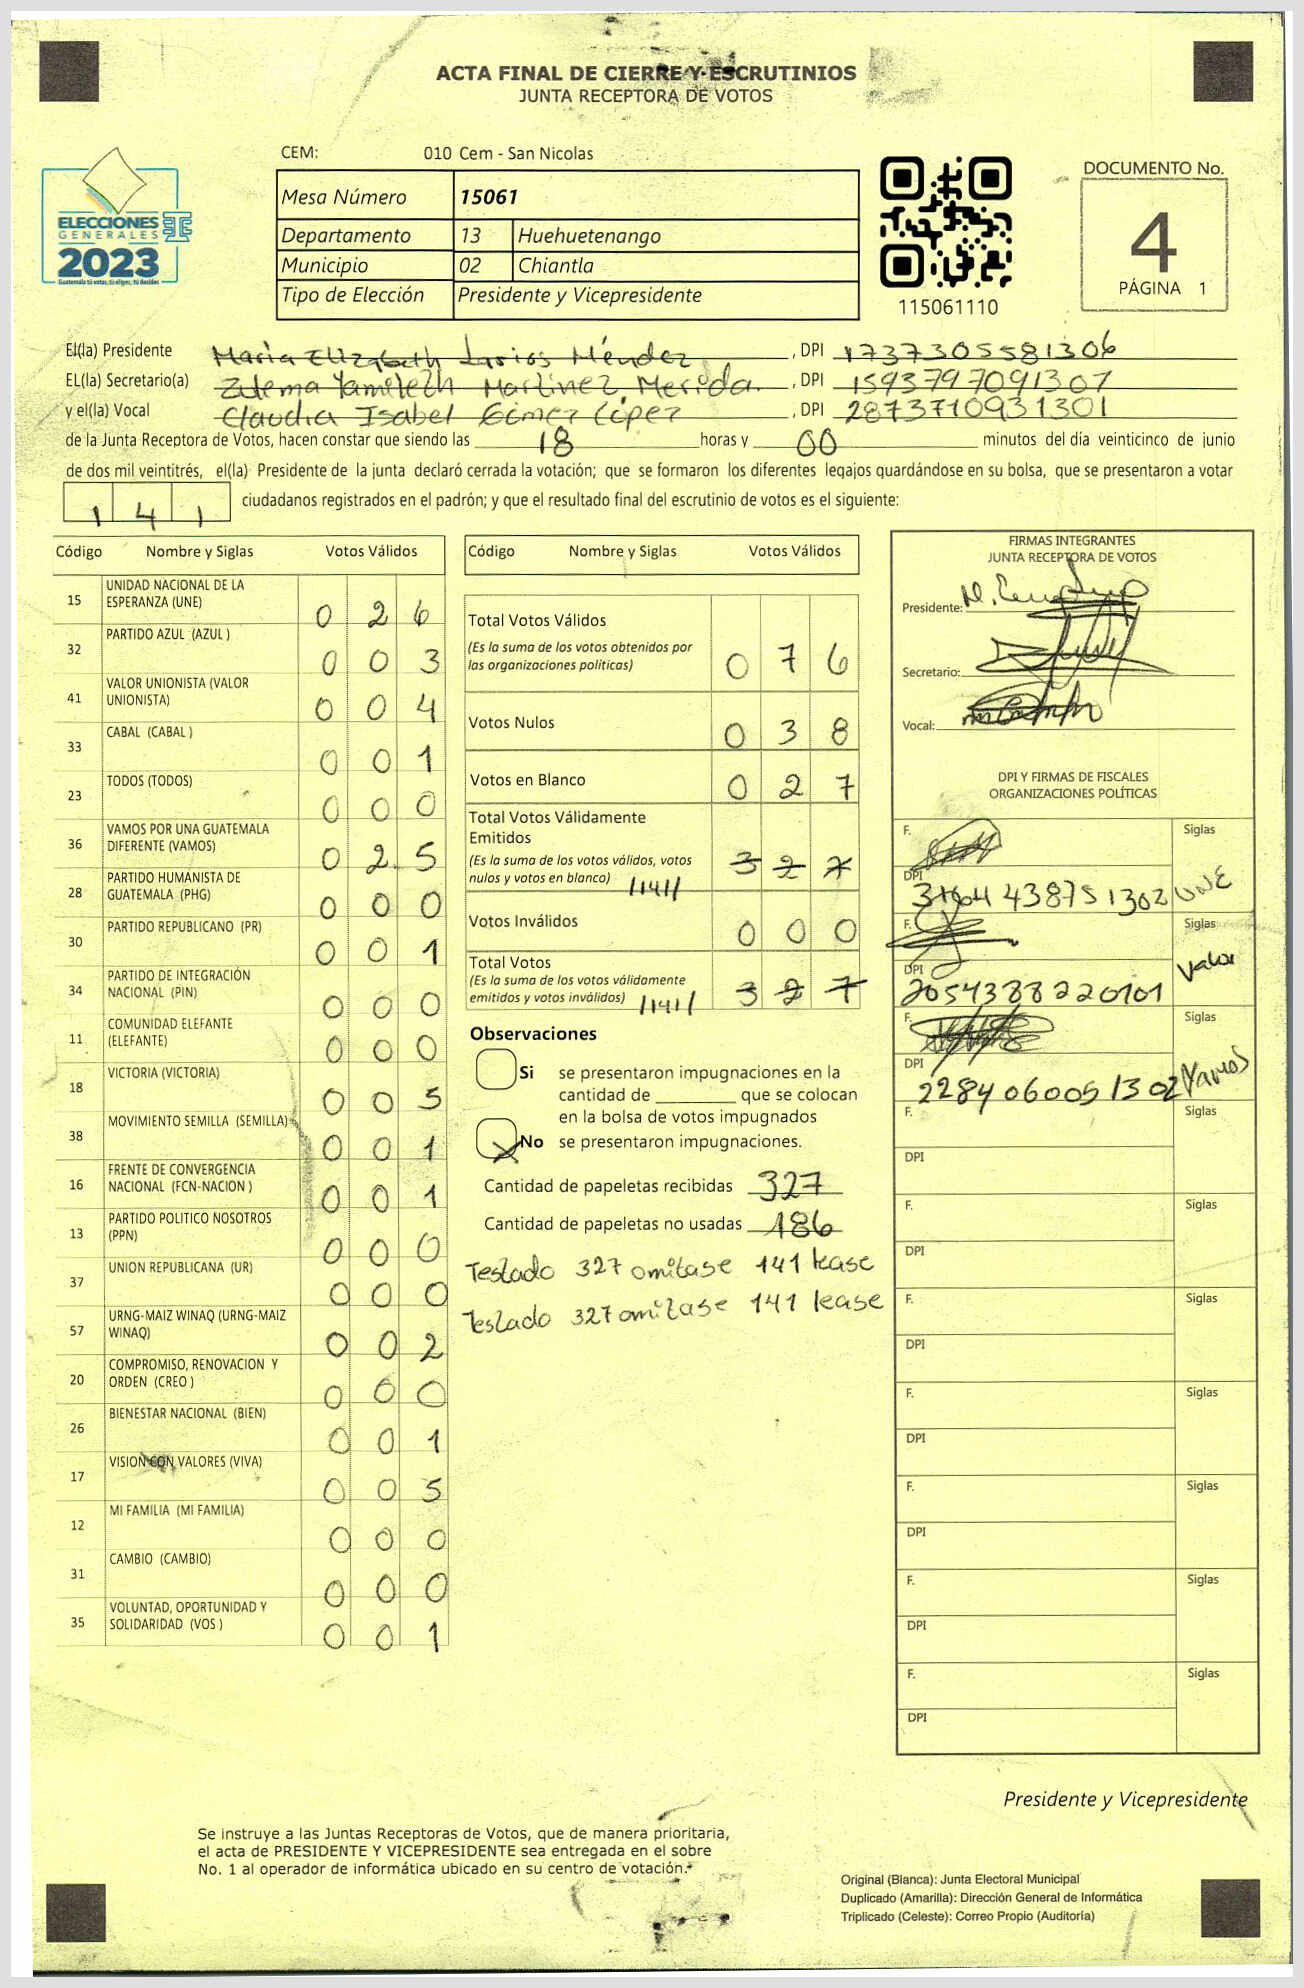 ACTA FINAL DE CIERRE Y ESCRUTINIOS
JUNTA RECEPTORA DE VOTOS
CEM: 010 Cem - San Nicolas
ELECCIONES
GENERALES
2023
Guatemala tú votas, tú eliges, tú decides
Mesa Número 15061
Departamento 13 Huehuetenango
Municipio 02 Chiantla
Tipo de Elección Presidente y Vicepresidente
115061110
DOCUMENTO No.
4
PÁGINA 1
El(la) Presidente Maria Elizabeth Larios Méndez, DPI 1737305581306
EL(la) Secretario(a) Zulema Yamileth Martinez Merida, DPI 1593797091307
y el(la) Vocal Claudia Isabel Gómez López, DPI 2873710931301
de la Junta Receptora de Votos, hacen constar que siendo las 18 horas y 00 minutos del día veinticinco de junio
de dos mil veintitrés, el(la) Presidente de la junta declaró cerrada la votación; que se formaron los diferentes legajos quardándose en su bolsa, que se presentaron a votar
1 4 1 ciudadanos registrados en el padrón; y que el resultado final del escrutinio de votos es el siguiente:
Código Nombre y Siglas Votos Válidos
15 UNIDAD NACIONAL DE LA ESPERANZA (UNE) 0 2 6
32 PARTIDO AZUL (AZUL ) 0 0 3
41 VALOR UNIONISTA (VALOR UNIONISTA) 0 0 4
33 CABAL (CABAL ) 0 0 1
23 TODOS (TODOS) 0 0 0
36 VAMOS POR UNA GUATEMALA DIFERENTE (VAMOS) 0 2 5
28 PARTIDO HUMANISTA DE GUATEMALA (PHG) 0 0 0
30 PARTIDO REPUBLICANO (PR) 0 0 1
34 PARTIDO DE INTEGRACIÓN NACIONAL (PIN) 0 0 0
11 COMUNIDAD ELEFANTE (ELEFANTE) 0 0 0
18 VICTORIA (VICTORIA) 0 0 5
38 MOVIMIENTO SEMILLA (SEMILLA) 0 0 1
16 FRENTE DE CONVERGENCIA NACIONAL (FCN-NACION ) 0 0 1
13 PARTIDO POLITICO NOSOTROS (PPN) 0 0 0
37 UNION REPUBLICANA (UR) 0 0 0
57 URNG-MAIZ WINAQ (URNG-MAIZ WINAQ) 0 0 2
20 COMPROMISO, RENOVACION Y ORDEN (CREO ) 0 0 0
26 BIENESTAR NACIONAL (BIEN) 0 0 1
17 VISION CON VALORES (VIVA) 0 0 5
12 MI FAMILIA (MI FAMILIA) 0 0 0
31 CAMBIO (CAMBIO) 0 0 0
35 VOLUNTAD, OPORTUNIDAD Y SOLIDARIDAD (VOS ) 0 0 1
Código Nombre y Siglas Votos Válidos
Total Votos Válidos
(Es la suma de los votos obtenidos por
las organizaciones politicas) 0 7 6
Votos Nulos 0 3 8
Votos en Blanco 0 2 7
Total Votos Válidamente
Emitidos
(Es la suma de los votos válidos, votos
nulos y votos en blanco) /141/ 3 2 7
Votos Inválidos 0 0 0
Total Votos
(Es la suma de los votos válidamente
emitidos y votos inválidos) /141/ 3 2 7
Observaciones
Si se presentaron impugnaciones en la
cantidad de ________ que se colocan
en la bolsa de votos impugnados
No se presentaron impugnaciones.
Cantidad de papeletas recibidas 327
Cantidad de papeletas no usadas 186
Testado 327 omitase 141 lease
Testado 327 omitase 141 lease
FIRMAS INTEGRANTES
JUNTA RECEPTORA DE VOTOS
Presidente:
Secretario:
Vocal:
DPI Y FIRMAS DE FISCALES
ORGANIZACIONES POLÍTICAS
F. Siglas
DPI 1302 UNE
F. Siglas
DPI 2054388220101 Valor
F. Siglas
DPI 2284060051302 Vamos
F. Siglas
DPI
F. Siglas
DPI
F. Siglas
DPI
F. Siglas
DPI
F. Siglas
DPI
F. Siglas
DPI
F. Siglas
DPI
Presidente y Vicepresidente
Se instruye a las Juntas Receptoras de Votos, que de manera prioritaria,
el acta de PRESIDENTE Y VICEPRESIDENTE sea entregada en el sobre
No. 1 al operador de informática ubicado en su centro de votación.
Original (Blanca): Junta Electoral Municipal
Duplicado (Amarilla): Dirección General de Informática
Triplicado (Celeste): Correo Propio (Auditoría)